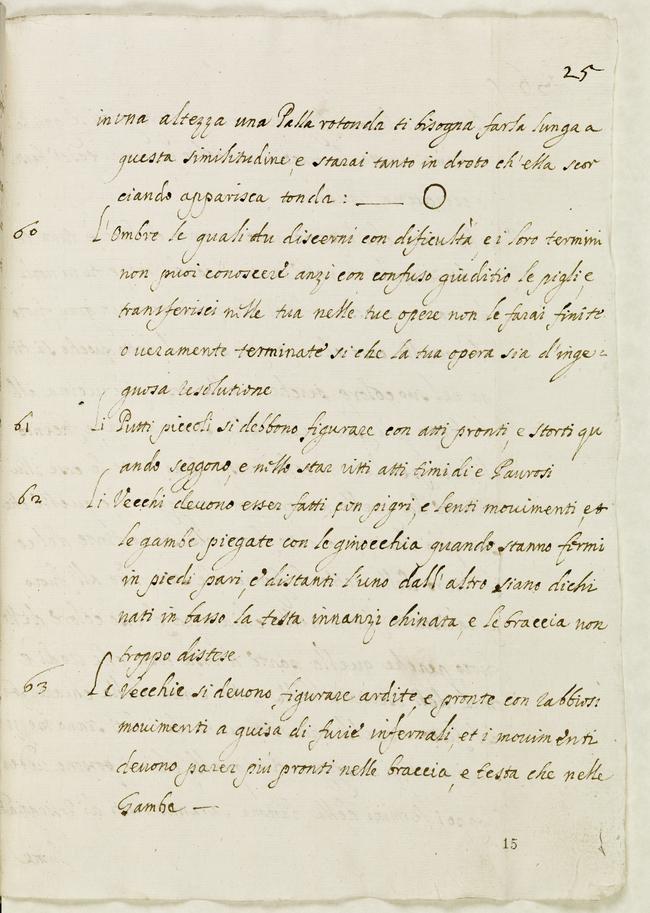 25
in una altezza una Palla rotonda ti bisogna farla lunga a
questa similitudine, e starai tanto in droto ch'ella scor
ciando apparisca tonda :
60 L'Ombre le quali tu discerni con dificultà, e i loro termini
non puoi conoscere anzi con confuso giuditio le pigli, e
transferisci nelle tua nelle tue opere non le farai finite
o ueramente terminate si che la tua opera sia d'inge=
gnosa resolutione
61 Li Putti piccoli si debbono figurare con atti pronti, e storti qu
ando seggono, e nello star ritti atti timidi e Paurosi
62 Li Vecchi devono esser fatti con pigri, e lenti mouimenti, et
le gambe piegate con le ginocchia quando stanno fermi
in piedi pari, e distanti l'uno dall'altro siano dichi
nati in basso la testa innanzi chinata, e le braccia non
troppo distese
63 Le Vecchie si deuono figurare ardite, e pronte con rabbiosi
mouimenti a guisa di furie infernali, et i mouimenti
deuono parer più pronti nelle braccia, e testa che nelle
Gambe —
15